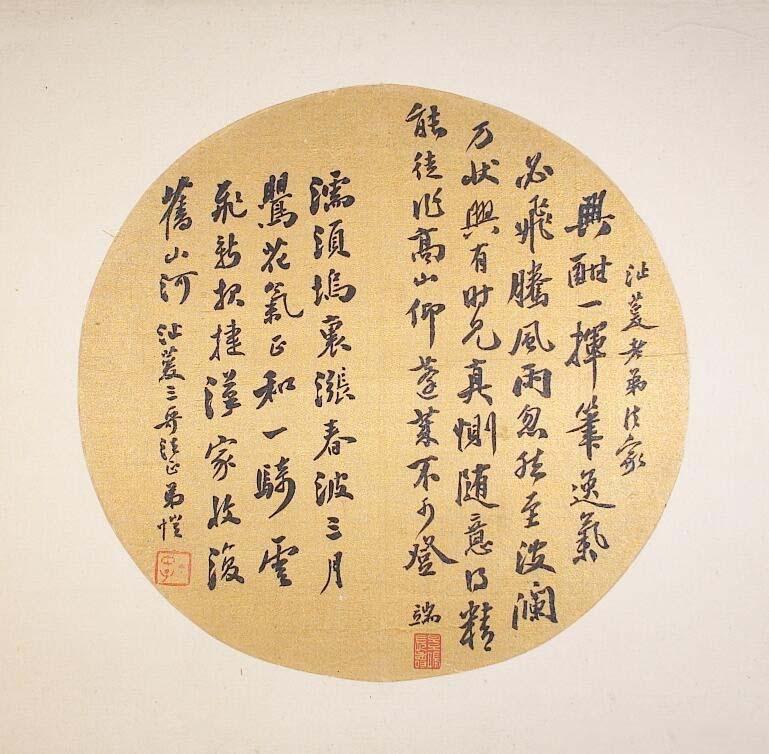 沚菱老弟法家
興酣一揮筆逸氣
必飛騰風雨忽然至波瀾
万狀興有时見真惻随意得精
能徒作高山仰蓬萊不可登 端
濡須塢裏漲春波三月
鸎花氣正和一騎雲
飛新報捷漢家收復
舊山河 沚菱三哥法正弟愷